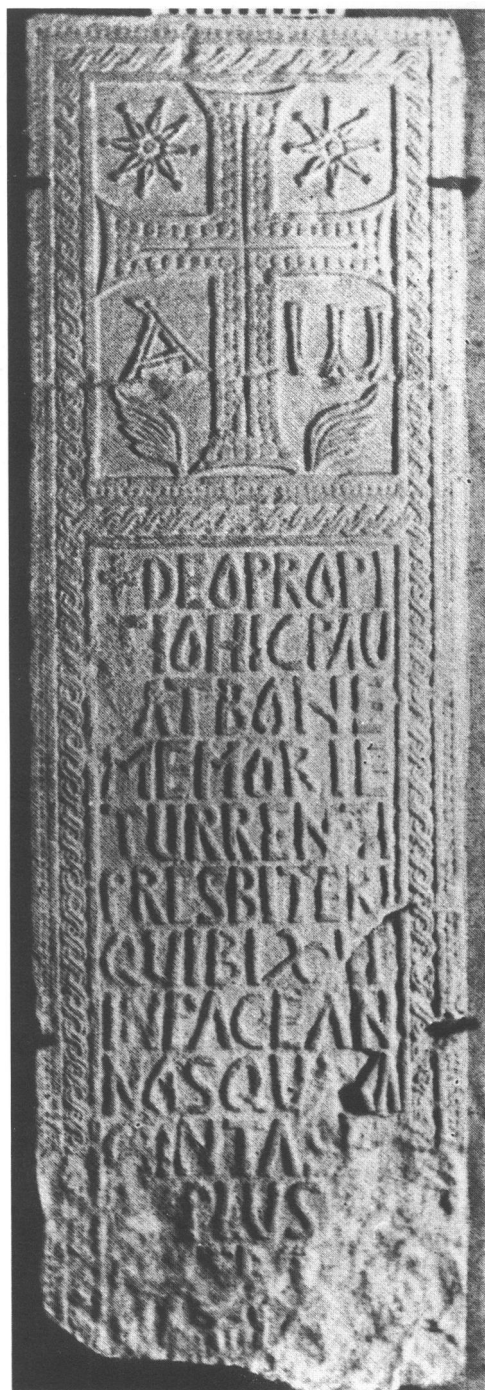 A Ѡ
+ DEOPROPI
TIOHICPAU
SATBONE
MEMORIE
TURRENTI
PRESBITERI
QUIBIXIT
INPACEAN
NOSQU
GINTA
PLUS